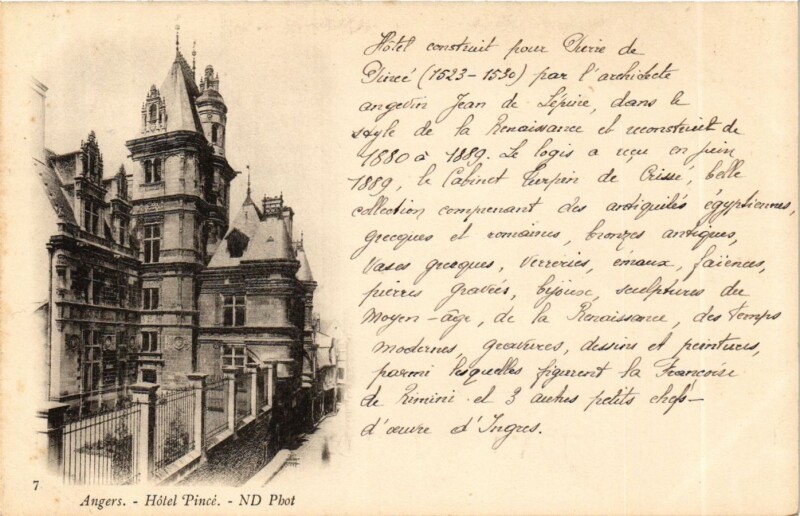 Hôtel construit pour Pierre de
Pincé (1523-1530) par l'architecte
angevin Jean de Lépine, dans le
style de la Renaissance et reconstruit de
1880 à 1889. Le logis a reçu en juin
1889, le Cabinet Turpin de Crissé, belle
collection comprenant des antiquités égyptiennes,
grecques et romaines, bronzes antiques,
Vases grecques, verreries, emaux, faïences,
pierres gravées, bijoux, sculptures du
Moyen-âge, de la Renaissance, des temps
modernes, gravures, dessins et peintures,
parmi lesquelles figurent la Françoise
de Rimini et 3 autres petits chefs-
d'œuvre d'Ingres.
7
Angers. - Hôtel Pincé. - ND Phot